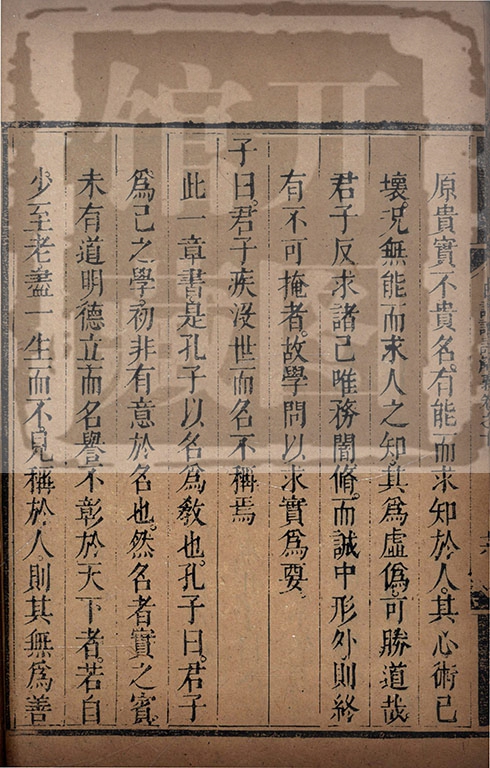 原貴實不貴名。有能而求知於人。其心術已
壞。况無能而求人之知。其為虛偽。可勝道哉
君子反求諸己。唯務闇脩。而誠中形外。則終
有不可掩者。故學問以求實為要
子曰。君子疾沒世而名不稱焉
此一章書。是孔子以名為教也。孔子曰。君子
為己之學。初非有意於名也。然名者實之賓。
未有道明德立而名譽不彰於天下者。若自
少至老。盡一生而不見稱於人。則其無為善